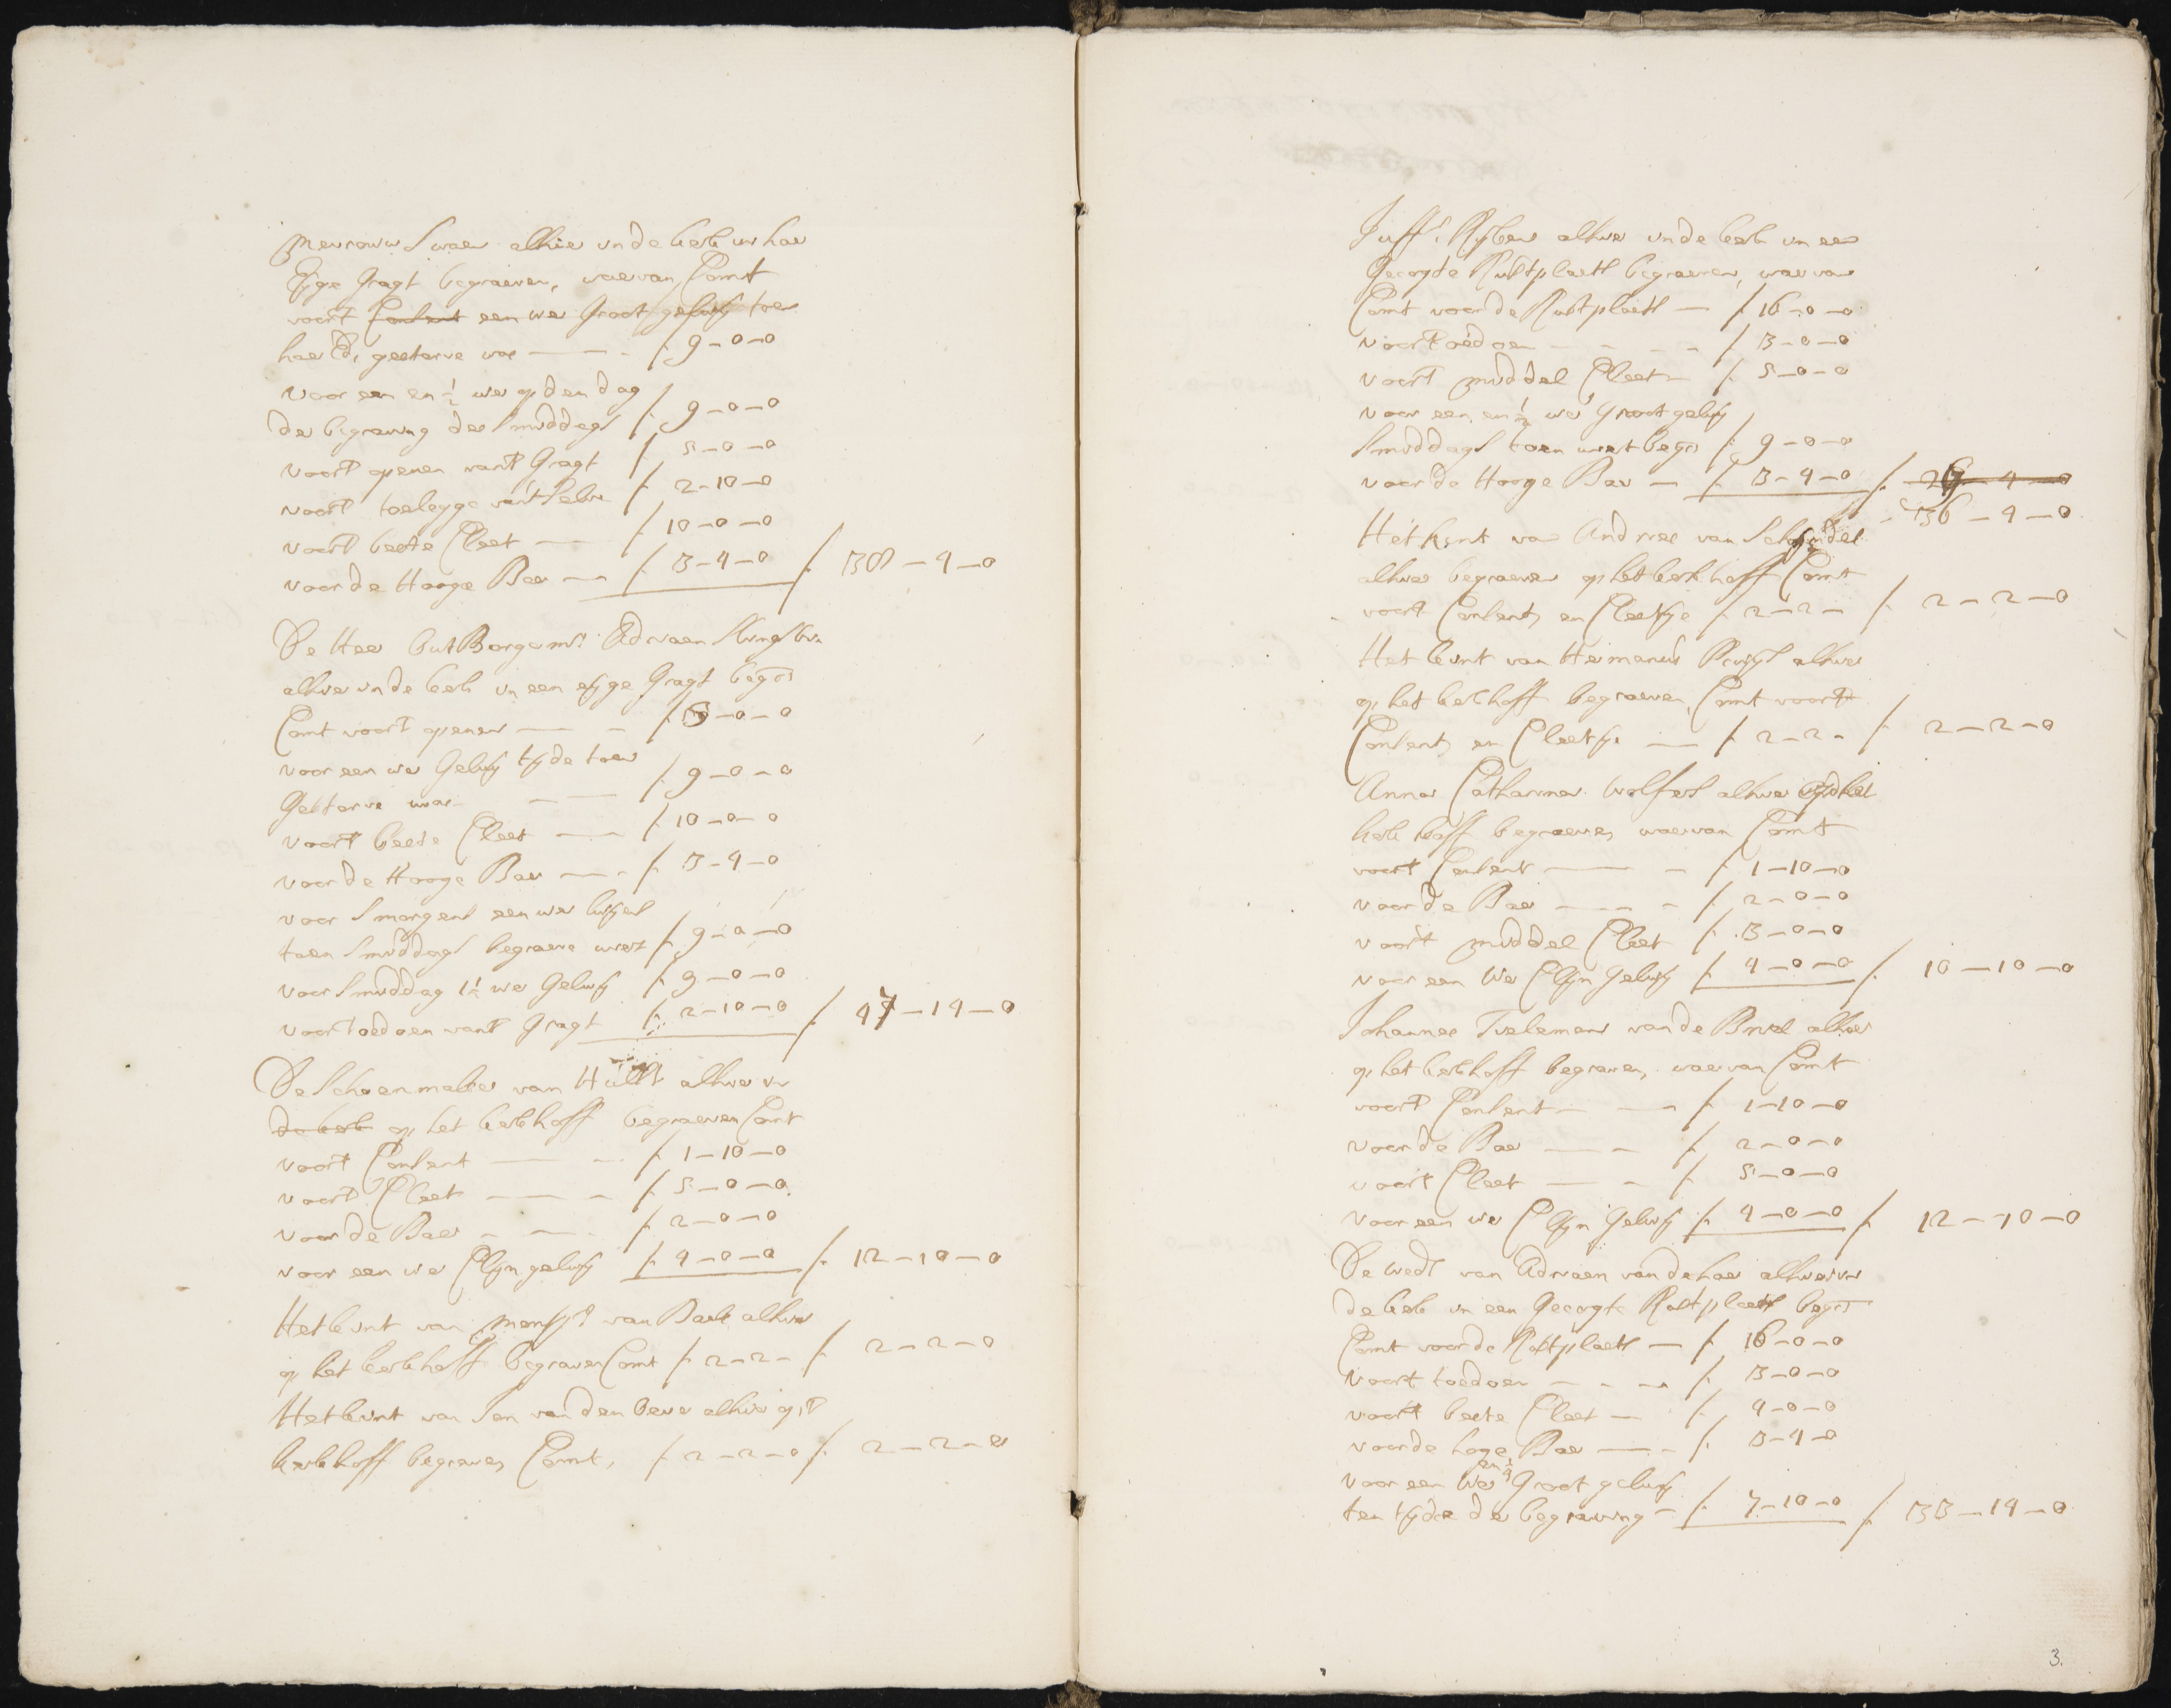 Mevrouw Swaen alhier in de kerk in haer
Eyge Graft begraeven, waervan Comt
voort Consent een uer Groot geluij toen
haer Ed. gestorve was — f 9-0-0
voor een en ½ uer op den dag
der begraving des Smiddags f 9-0-0
voort openen vant Graft f 5-0-0
voort toeleggen vant Selve f 2-10-0
voort beste Cleet — f 10-0-0
voor de Hooge Baer — f 3-4-0 f 38-4-0
De Heer Out Borgermr. Adriaen
alhier in de kerk in een eijge Graft begrs
Comt voort openen — f 5-0-0
voor een uer Geluij tijde toen
Gestorve was — f 9-0-0
voort beste Cleet — f 10-0-0
voor de Hooge Baer — f 3-4-0
voor Smorgens een uer luijens
toen Smiddags begraeve wiert f 9-0-0
voor Smiddag 1½ uer Geluij f 9-0-0
voor toedoen vant Graft f 2-10-0 f 47-14-0
De Schoenmaker van Hulst alhier in
de kerk op het kerkhoff begraeven Comt
voort Consent — f 1-10-0
voort Cleet — f 5-0-0
voor de Baer — f 2-0-0
voor een uer Clijn geluij f 4-0-0 f 12-10-0
Het kint van van Baele alhier
op het kerkhoff begraven Comt f 2-2- f 2-2-0
Het kint van Jan van den Bever alhier op't
kerkhoff begraven Comt, f 2-2-0 f 2-2-0
Juff. Rijkens alhier in de kerk in een
Gecogte Rustplaets begraeven, waervan
Comt voor de Rustplaets — f 16-0-0
voort toedoen — f 3-0-0
voort middel Cleet — f 5-0-0
voor een en ½ uer Groot geluij
Smiddags toen wiert begrs f 9-0-0
voor de Hooge Baer — f 3-4-0 f 29-4-0
36-4-0
Het kint van Andries van Schijndel
alhier begraeven op het kerkhoff Comt
voort Consent en Cleetje f 2-2- f 2-2-0
Het kint van Hermanus alhier
op het kerkhoff begraeven, Comt voort
Consent en Cleetje — f 2-2- f 2-2-0
Anna Catharina Wolfers alhier op het
kerkhoff begraeven waervan Comt
voort Consent — f 1-10-0
voor de Baer — f 2-0-0
voort middel Cleet f 3-0-0
voor een Uer Clijn Geluij f 4-0-0 f 10-10-0
Johannes Tielemans van de Briel alhier
op het kerkhoff begraven, waervan Comt
voort Consent — f 1-10-0
voor de Baer — f 2-0-0
voort Cleet — f 5-0-0
voor een uer Clijn Geluij f 4-0-0 f 12-10-0
De Wedt van Adriaen van de haer alhier in
de kerk in een Gecogte Rustplaets begrs
Comt voor de Rustplaets — f 16-0-0
voort toedoen — f 3-0-0
voort beste Cleet — f 4-0-0
voor de hoge Baer — f 3-4-0
en ½
voor een Uer Groot geluij
ten tijde der begraving — f 7-10-0 f 33-14-0
3.